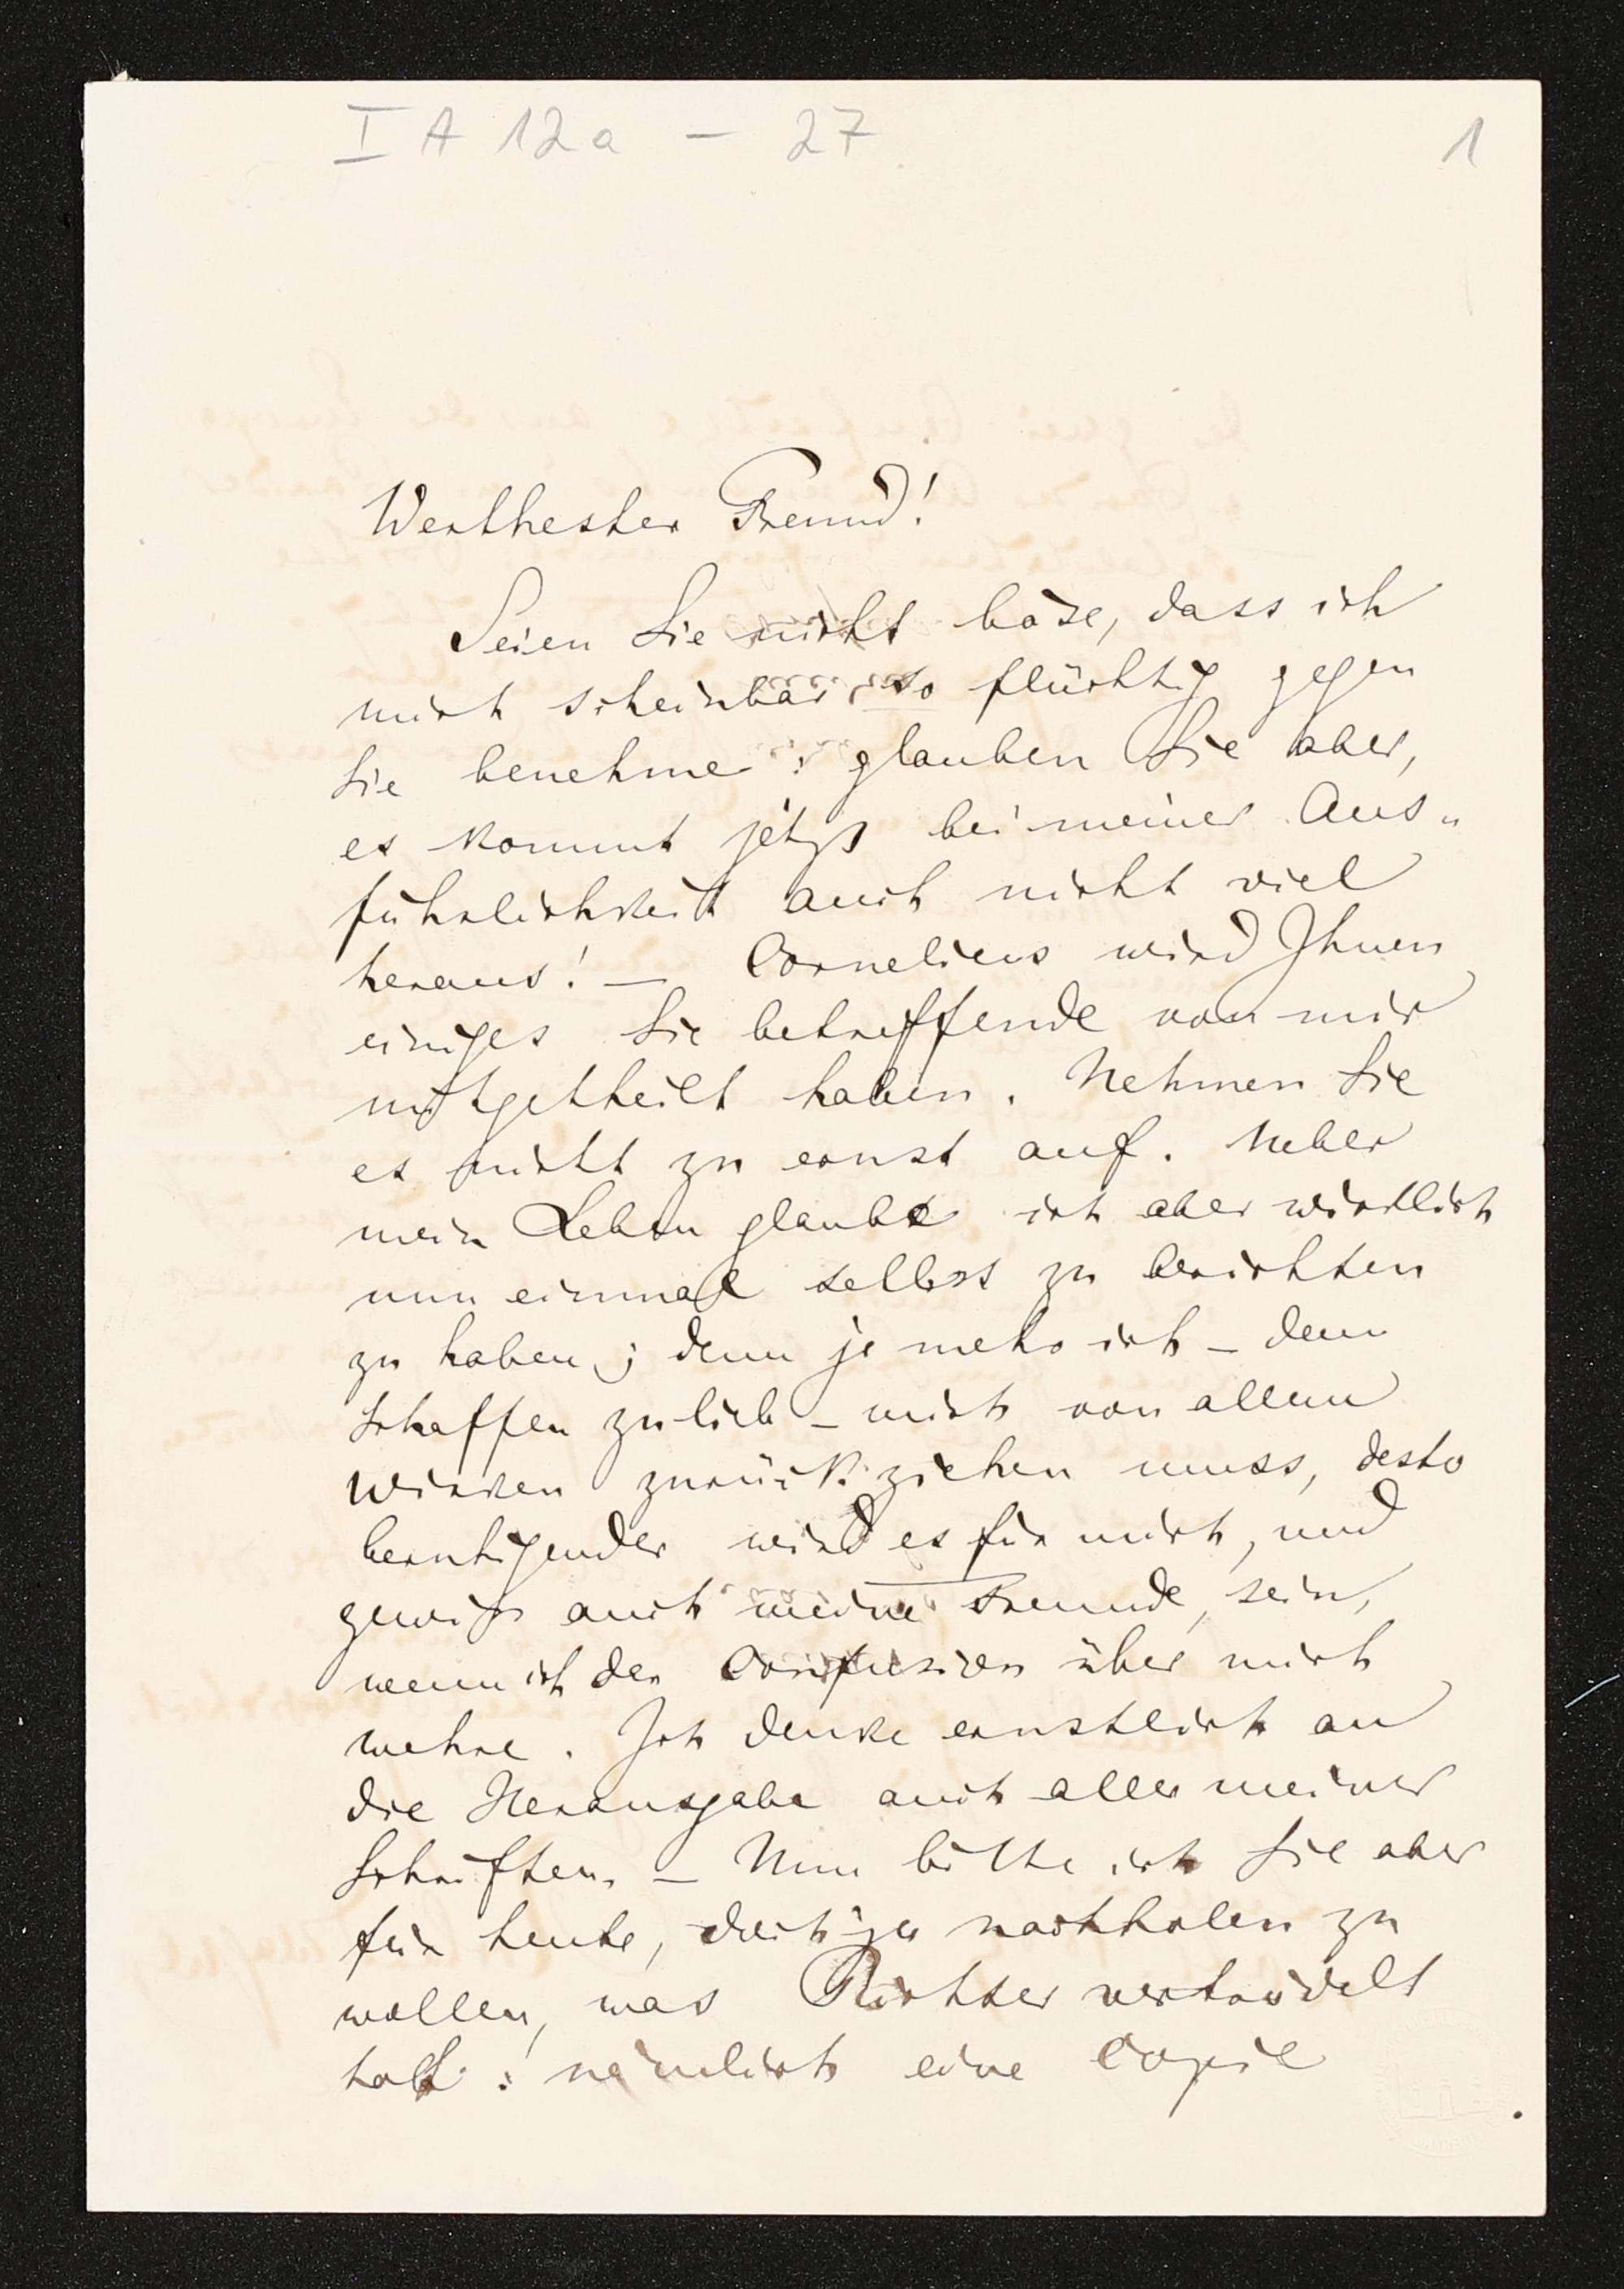 I A 12a - 27
1
Werthester Freund!
Seien Sie nicht böse, dass ich
mich scheinbar so flüchtig gegen
Sie benehme: glauben Sie aber,
es kommt jetzt bei meiner Aus-
führlichkeit auch nicht viel
heraus! — Cornelius wird Ihnen
einiges Sie betreffende von mir
mitgetheilt haben. Nehmen Sie
es nicht zu ernst auf. Ueber
mein Leben glaube ich aber wirklich
nun einmal selbst zu berichten
zu haben; denn je mehr ich – dem
Schaffen zulieb – mich von allem
Wirken zurückziehen muss, desto
beruhigender wird es für mich, und
gewiß auch meine Freunde, sein,
wenn ich der Confusion über mich
wehre. Ich denke ernstlich an
die Herausgabe auch aller meiner
Schriften. — Nun bitte ich Sie aber
für heute, doch ja nachholen zu
wollen, was Richter vertrödelt
hat: nämlich eine Copie